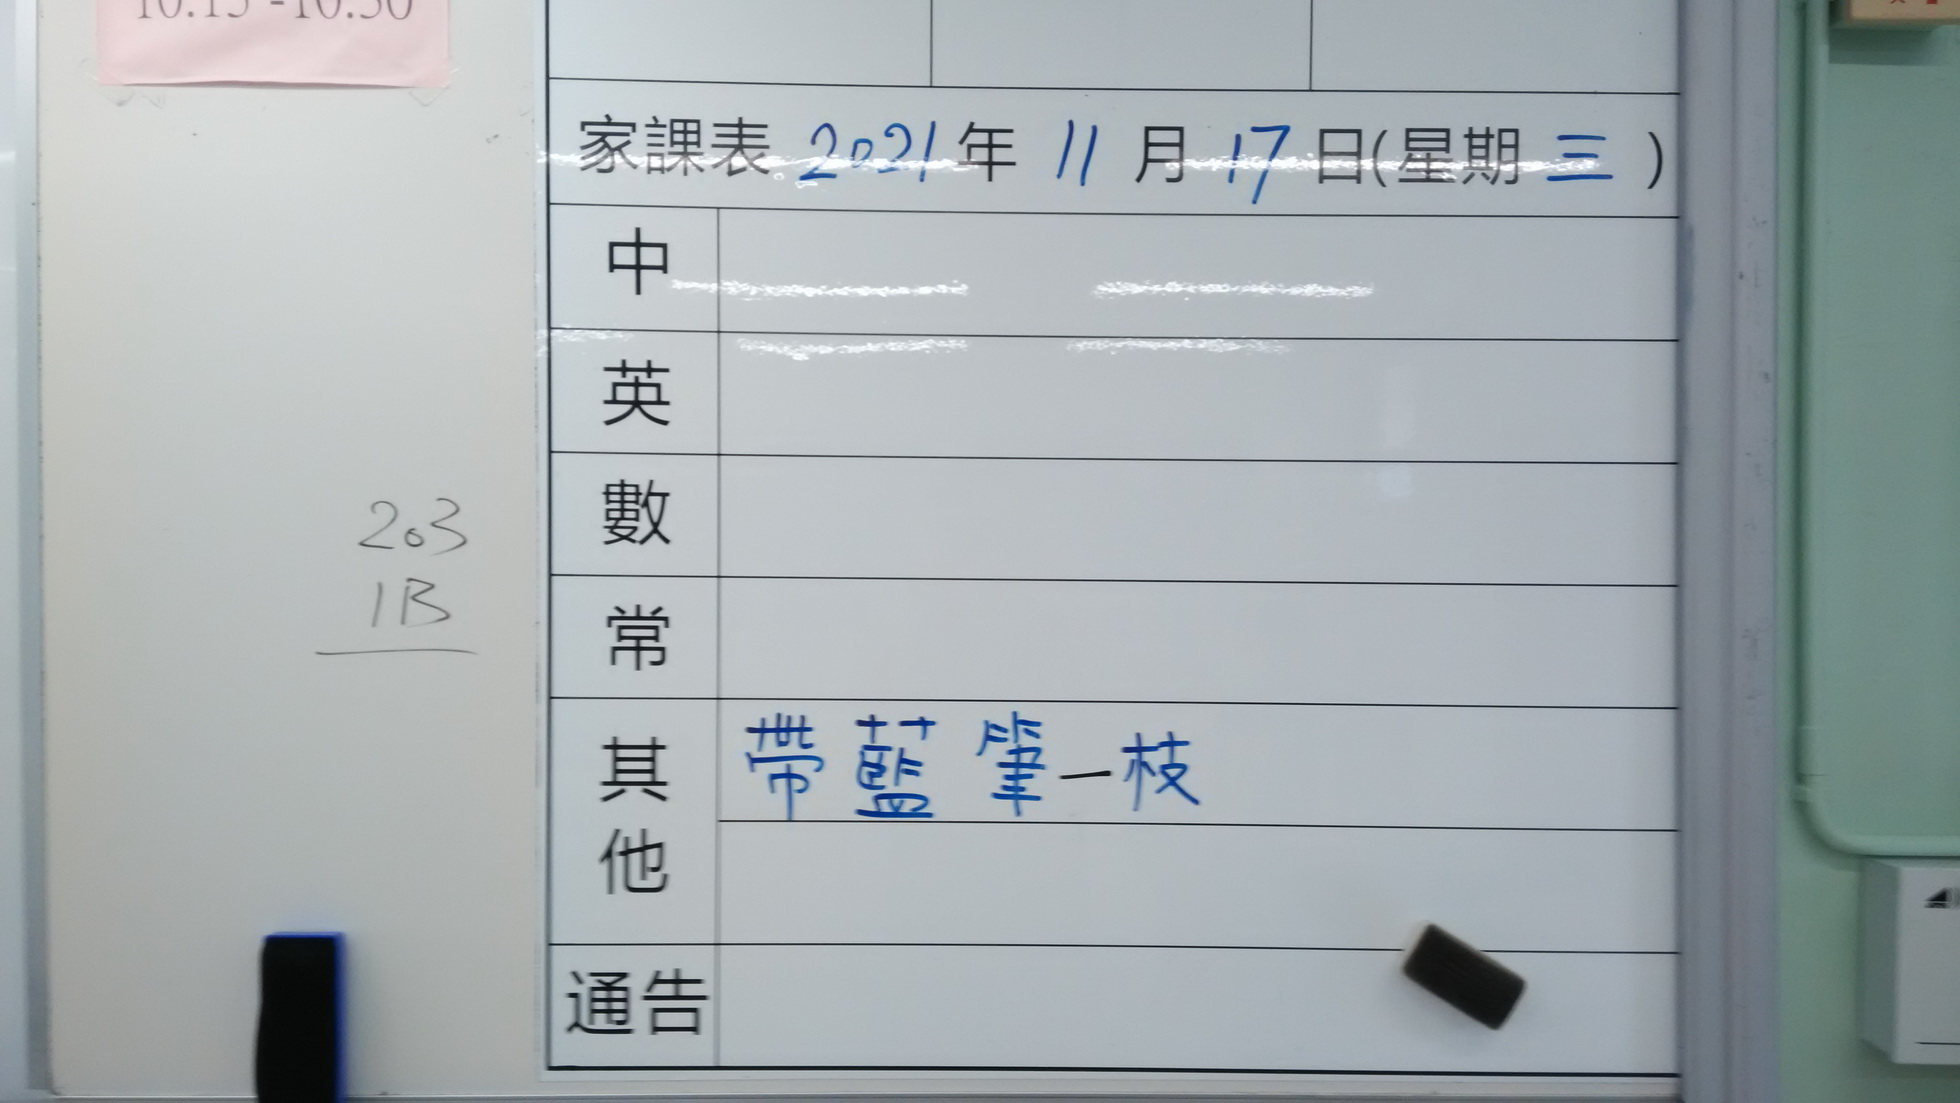 10:15 -10:30
家課表 2021 年 11 月 17 日(星期 三 )
中
英
數
常
其他
帶藍筆一枝
通告
203
1B